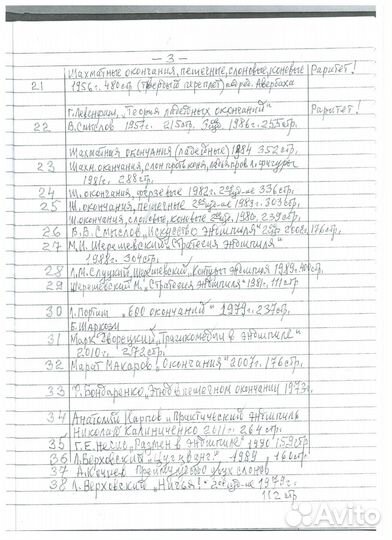 — 3 —
Шахматные окончания, пешечные, слоновые, коневые Раритет!
21 1956г. 480стр (твёрдый переплёт) Авербаха
Г. Левенфиш, „Теория ладейных окончаний" Раритет!
22 В. Смыслов 1957г. 215стр. 1986г. 255стр.
Шахматные окончания (ладейные) 1984 352стр.
23 Шахм. окончания, слон против коня, ладья против л. фигуры
1981г. 288стр.
24 Ш. окончания, ферзевые 1982г. 2ое изд-ие 336стр.
25 Ш. окончания, пешечные 2ое изд-ие 1983г. 303стр.
Ш. окончания, слоновые, коневые 2ое 1980г. 239стр.
26 В.В. Смыслов „Искусство эндшпиля" 2002г. 176стр.
27 М.И. Шерешевский „Стратегия эндшпиля"
1988г. 304стр.
28 Л.М. Слуцкий, Шерешевский „Контуры эндшпиля 1989.
29 Шерешевский М. „Стратегия эндшпиля" 1981. 111стр
30 Л. Портиш „600 окончаний" 1979г. 237стр.
Б. Шаркози
31 Марк Дворецкий, „Трагикомедии в эндшпиле"
2010г. 272стр.
32 Марат Макаров „Окончания" 2007г. 176стр.
33 Ф. Бондаренко, Этюд в пешечном окончании 1973г.
34 Анатолий Карпов „Практический эндшпиль
Николай Калиниченко 2011г. 264стр.
35 Г.Е. „Размен в эндшпиле" 1990 159стр
36 Л. Верховский „Цугцванг!" 1989 160стр.
37 Преимущество двух слонов
38 Л. Верховский „Ничья!" 2ое изд-ие 1979г.
112стр
Avito